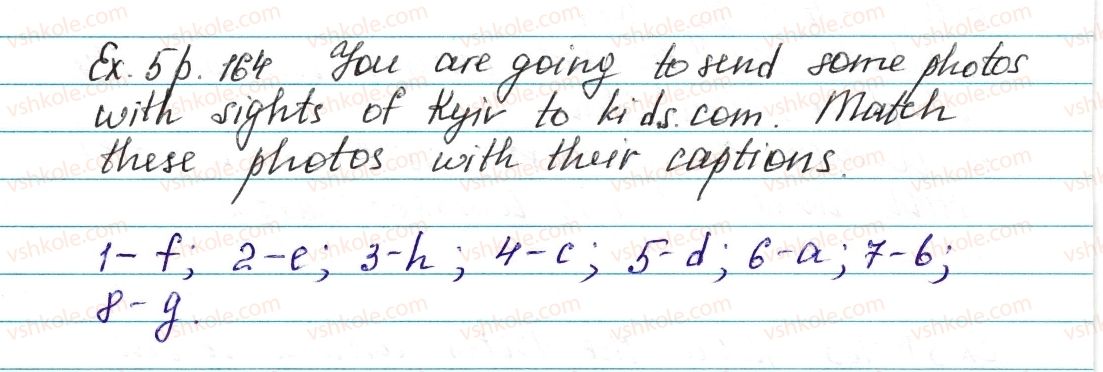 Ex. 5 p. 164 You are going to send some photos
with sights of Kyiv to kids.com. Match
these photos with their captions.
1 - f; 2 - e; 3 - h; 4 - c; 5 - d; 6 - a; 7 - b;
8 - g.